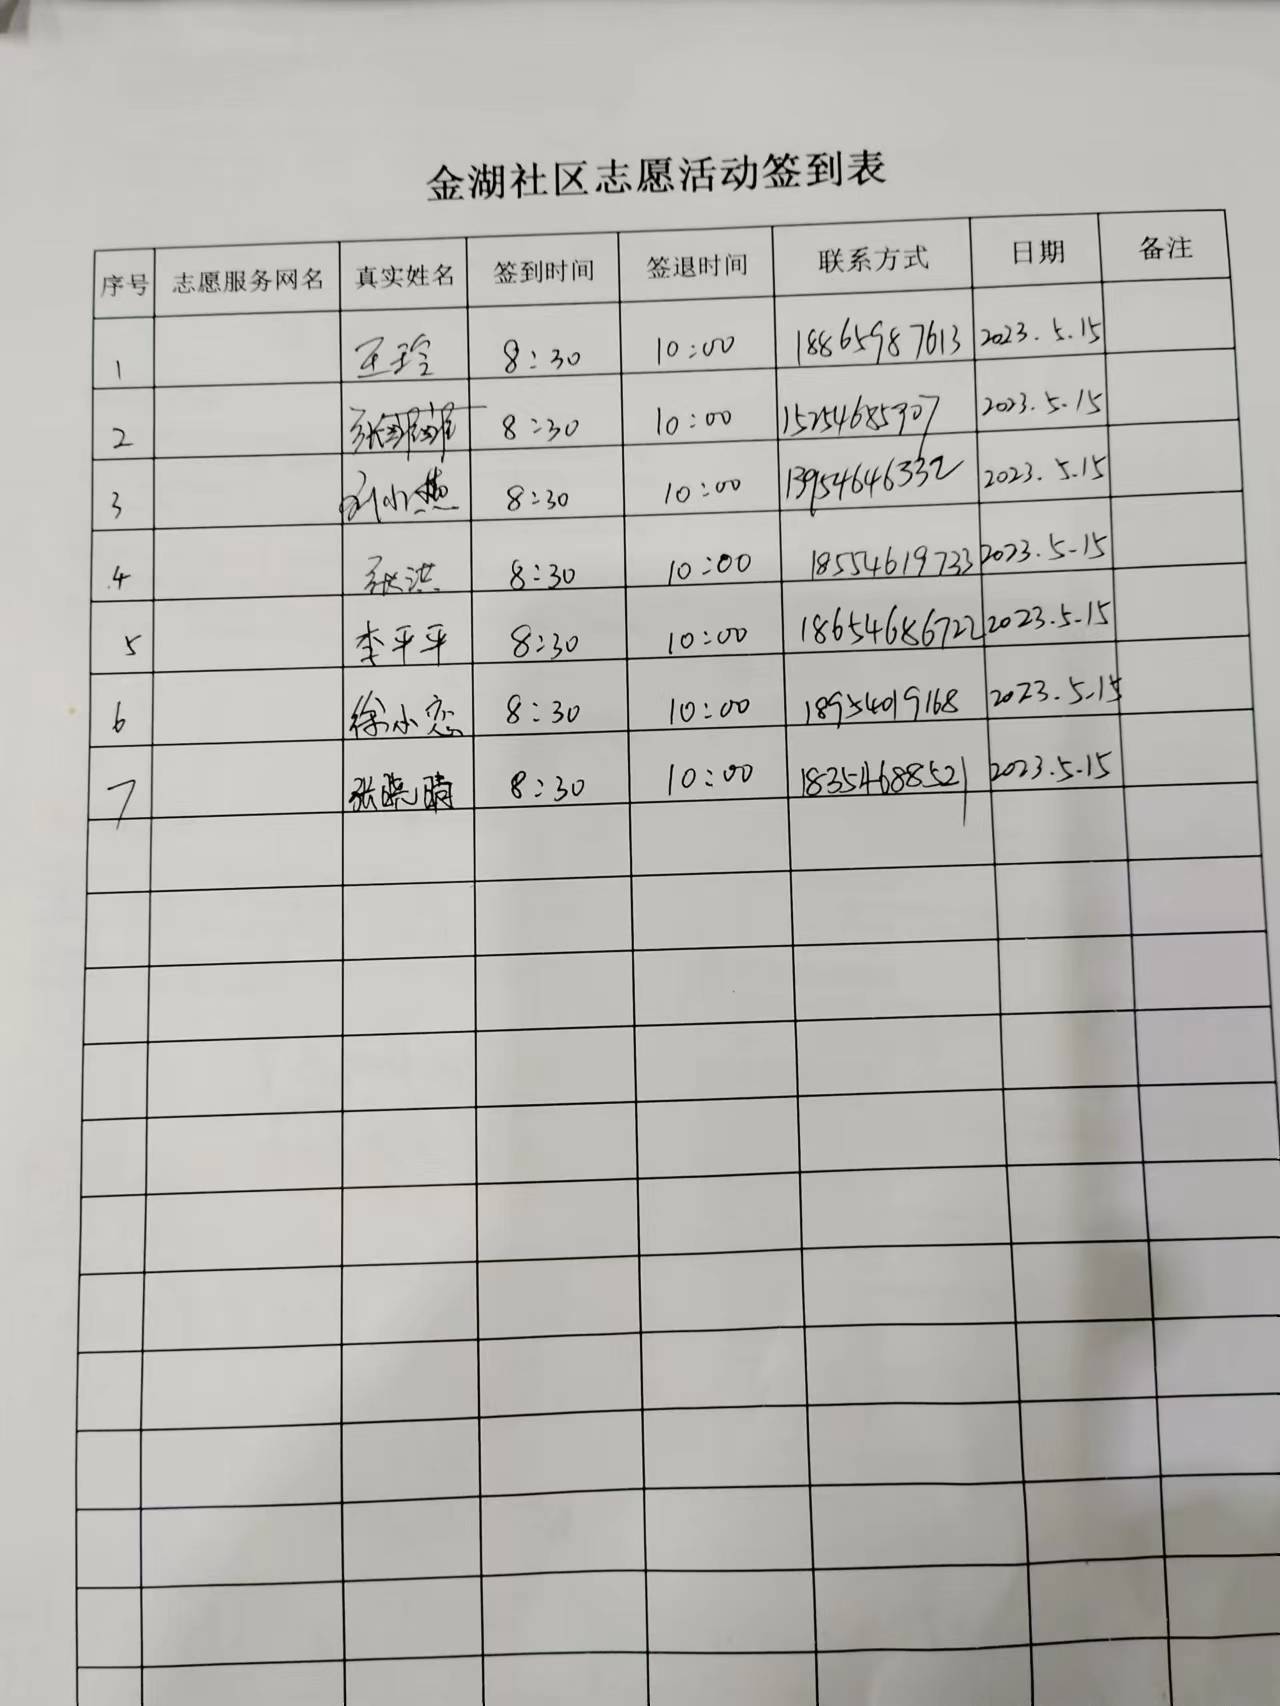 金湖社区志愿活动签到表
序号 志愿服务网名 真实姓名 签到时间 签退时间 联系方式 日期 备注
1 王玲 8:30 10:00 18865987613 2023.5.15
2 8:30 10:00 15254685307 2023.5.15
3 刘小燕 8:30 10:00 13954646332 2023.5.15
4 张洪 8:30 10:00 18554619733 2023.5.15
5 李平平 8:30 10:00 18654686722 2023.5.15
6 徐小恋 8:30 10:00 18954019168 2023.5.15
7 张晓晴 8:30 10:00 18354688521 2023.5.15